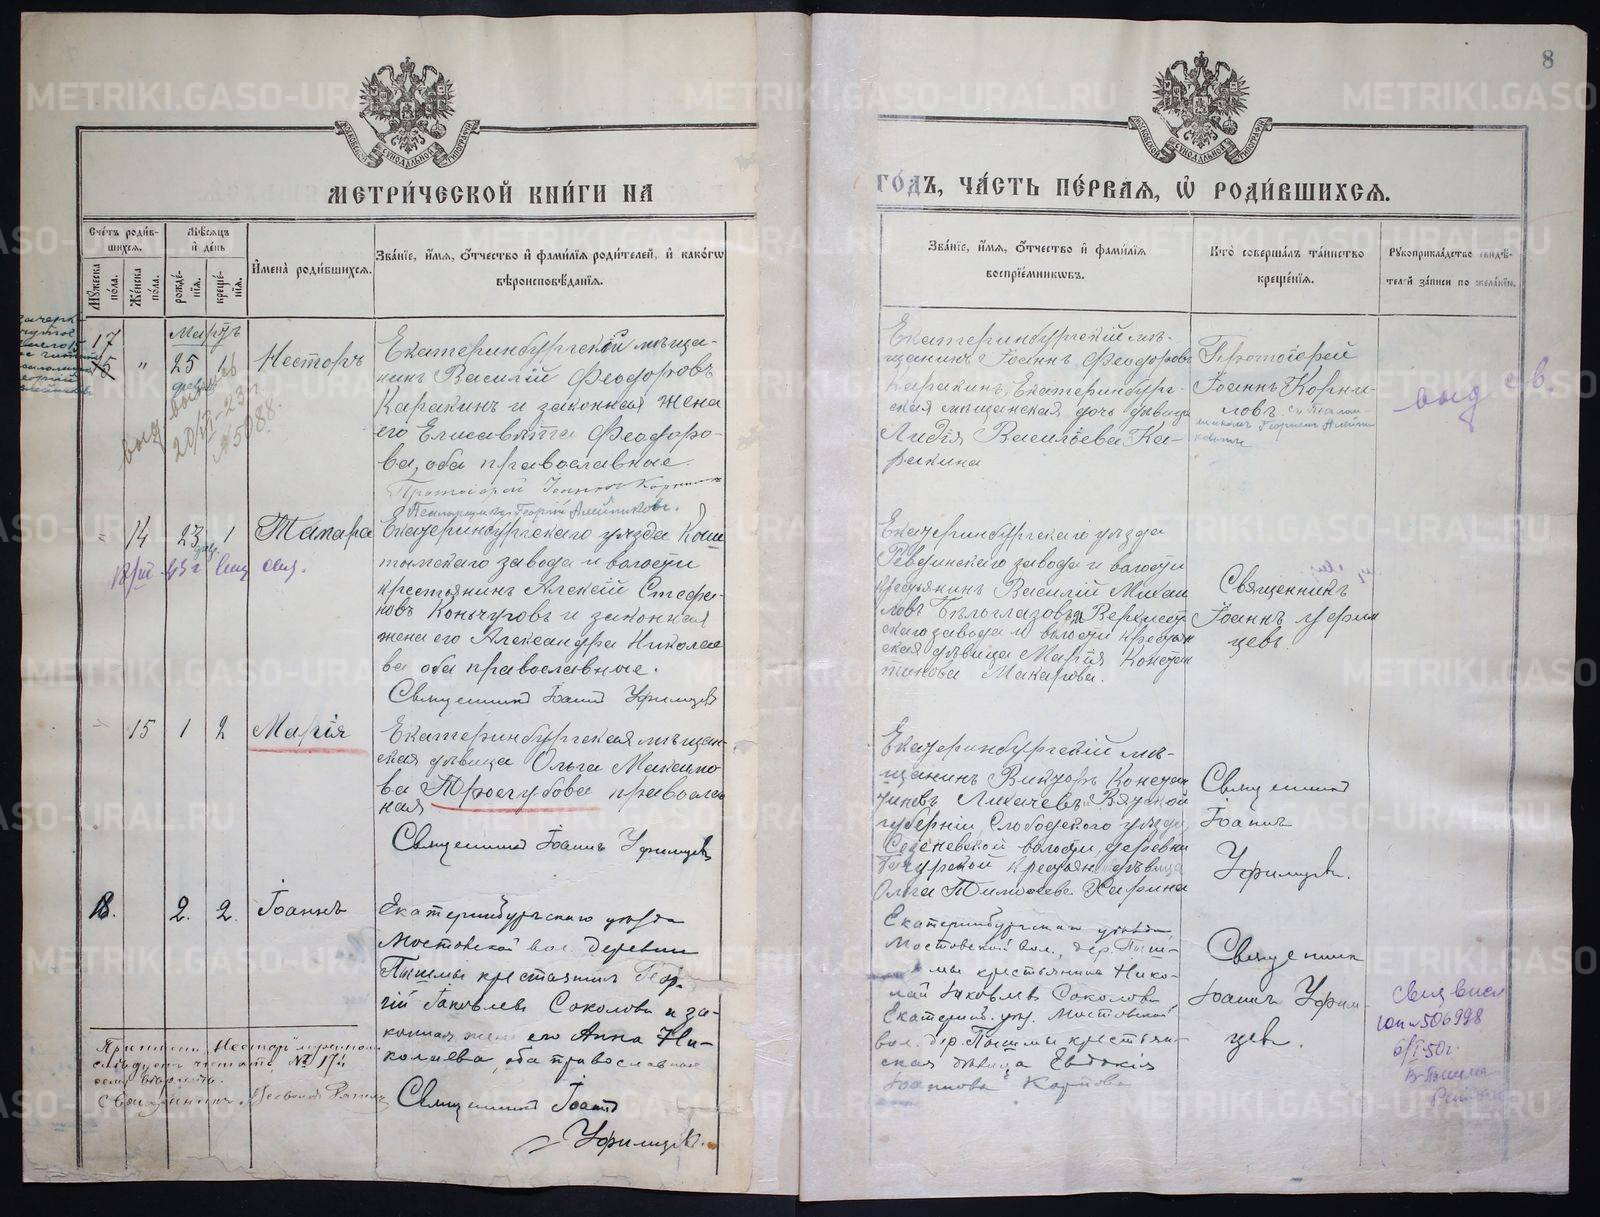 8
МЕТРИ́ЧЕСКОЙ КНИ́ГИ НА
ГО́ДЪ, ЧА́СТЬ ПЕ́РВАѦ, Ѡ҆ РОДИ́ВШИХСѦ.
Сче́тъ роди́в-
шихсѧ.
Мꙋ́жеска по́ла.
Же́нска по́ла.
Мѣ́сѧцъ и҆ де́нь
рожде́-нїѧ.
креще́-нїѧ.
И҆мена̀ роди́вшихсѧ.
Зва́нїе, и҆́мѧ, ѻ҆́тчество и҆ фами́лїѧ роди́телей, и҆ како́гѡ
вѣроисповѣ́данїѧ.
Зва́нїе, и҆́мѧ, ѻ҆́тчество и҆ фами́лїѧ
воспрїе́мникѡвъ.
Кто̀ соверша́лъ та́инство
креще́нїѧ.
Рꙋкоприкла́дство свидѣ́-
телей за́писи по жела́нїю.
17
Мартъ
15 " 25 26
Несторъ
Екатеринбургскій мѣща-
нинъ Василій Феодоровъ
Каракинъ и законная жена
его Елисавета Феодоро-
ва, оба православные.
Протоіерей Іоаннъ Корнил
Псаломщикъ Георгій Алейниковъ.
Екатеринбургскій мѣ-
щанинъ Іоаннъ Феодоровъ
Каракинъ, Екатеринбург-
ская мѣщанская дочь дѣвица
Лидія Васильева Ка-
ракина
Протоіерей
Іоаннъ Корни-
ловъ
выд
20/VI-23 г.
№ 5088.
" 14 23 1
Тамара
Екатеринбургскаго уѣзда Кыш
тымскаго завода и волости
крестьянинъ Алексій Стефа-
новъ Кончуговъ и законная
жена его Александра Николае
ва оба православные.
Священникъ Іоаннъ Уфимцевъ
Екатеринбургскаго уѣзда
Ревдинскаго завода и волости
крестьянинъ Василій Михаи
ловъ Бѣлоглазовъ и Верхисет
скаго завода и волости крестьян
ская дѣвица Марія Констан
тинова Макарова.
Священникъ
Іоаннъ Уфим
цевъ.
15 1 2
Марія
Екатеринбургская мѣщан-
ская дѣвица Ольга Максимо
ва Тросгубова православ
ная
Священникъ Іоаннъ Уфимцевъ
Екатеринбургскій мѣ-
щанинъ Викторъ Констан
тиновъ Лихачевъ, Вятской
губерніи, Слободскаго уѣзда
волости деревни
крестьян. дѣвица
Ольга Тимофеева Харина
Священникъ
Іоаннъ
Уфимцевъ.
18. 2. 2.
Іоаннъ
Екатеринбургскаго уѣзда
Мостовской вол. деревни
Пышмы крестьянинъ Геор-
гій Іаковлевъ Соколовъ и за-
конная жена его Анна Ни-
колаева, оба православные
Священникъ Іоаннъ
Уфимцевъ.
Екатеринбургскаго уѣзда
Мостовской вол., дер. Пыш-
мы крестьянинъ Нико-
лай Іаковлевъ Соколовъ
Екатеринб. уѣз. Мостовской
вол. дер. Пышмы крестьян-
ская дѣвица Евдокія
Іоаннова Карпова
Священник
Іоаннъ Уфим-
цев.
506998
6/I-50 г.